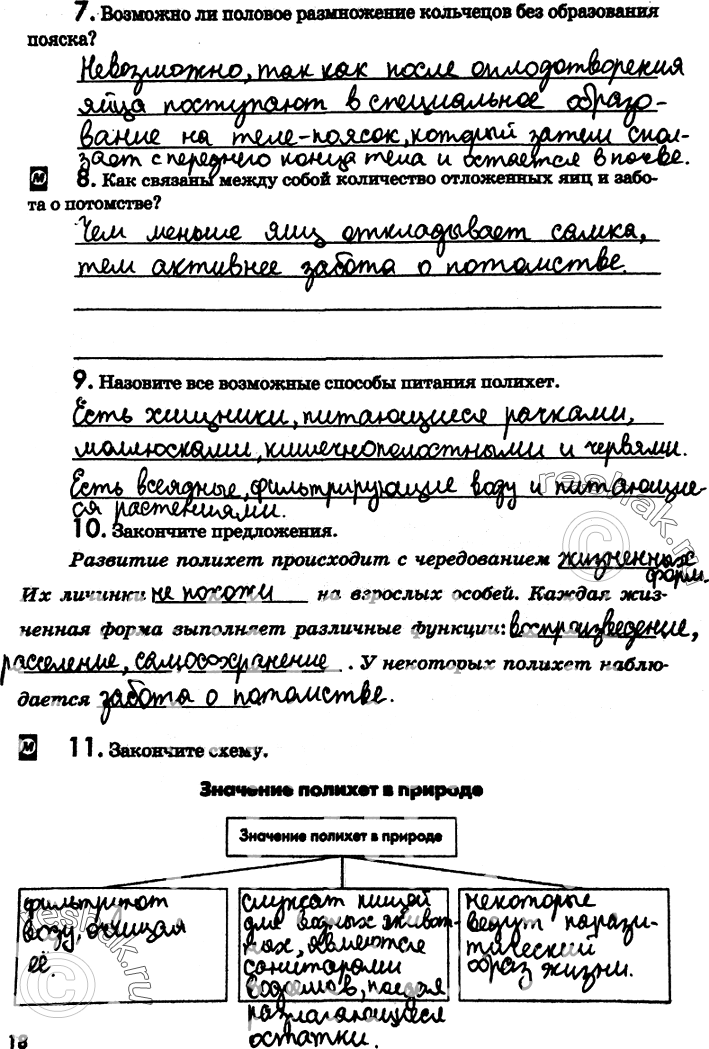 7. Возможно ли половое размножение кольчецов без образования
пояска?
Невозможно, так как после оплодотворения
яйца поступают в специальное образо-
вание на теле-поясок, который затем спол-
зает с переднего конца тела и остается в почве.
М 8. Как связаны между собой количество отложенных яиц и забо-
та о потомстве?
Чем меньше яиц откладывает самка,
тем активнее забота о потомстве.
9. Назовите все возможные способы питания полихет.
Есть хищники, питающиеся рачками,
моллюсками, кишечнополостными и червями.
Есть всеядные, фильтрирующие воду и питающие-
ся растениями.
10. Закончите предложения.
Развитие полихет происходит с чередованием жизненных
форм.
Их личинки не похожи на взрослых особей. Каждая жиз-
ненная форма выполняет различные функции: воспроизведение,
расселение, самосохранение. У некоторых полихет наблю-
дается забота о потомстве.
М 11. Закончите схему.
Значение полихет в природе
Значение полихет в природе
фильтруют
воду, очищая
её.
служат пищей
для водных живот-
ных, являются
санитарами
водоемов, поедая
разлагающиеся
остатки.
некоторые
ведут парази-
тический
образ жизни.
18
reshak.ru
reshak.ru